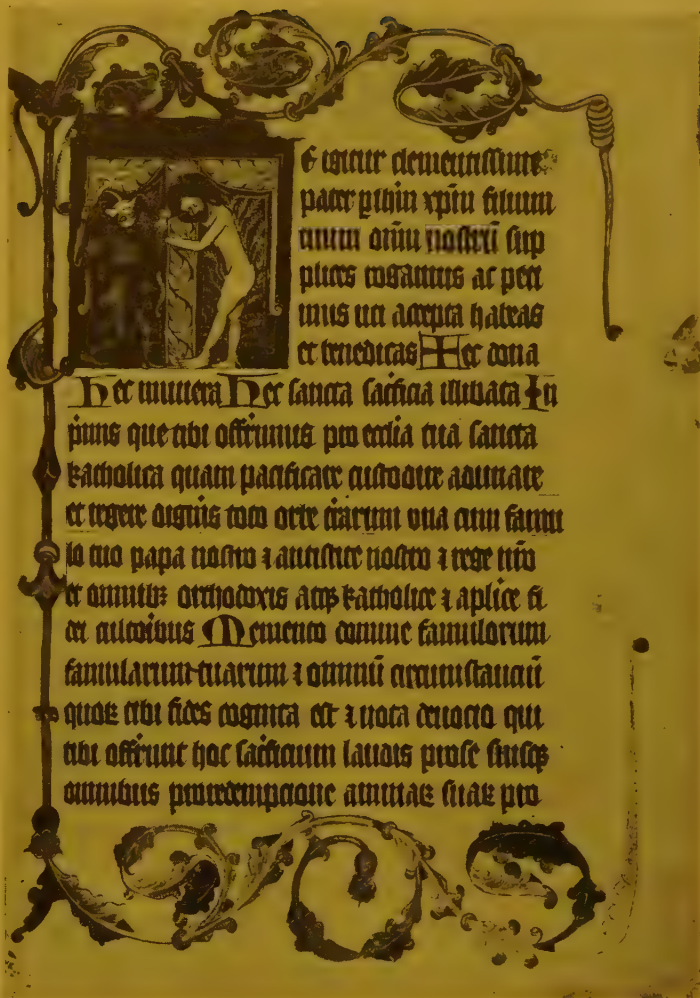 E igitur clementissime
pater p ihm xpm filium
tuum dnm nostrū sup
plices rogamus ac peti
mus uti accepta habeas
et benedicas Hec dona
Hec munera Hec sancta sacficia illibata In
pmis que tibi offerimus pro ecclia tua sancta
katholica quam pacificare custodire adunare
et regere digneris toto orbe trarum una cum famu
lo tuo papa nostro ⁊ antistite nostro ⁊ rege nro
et omnibꝫ orthodoxis atqꝫ katholice ⁊ aplice fi
dei cultoribus Memento domine famulorum
famularum tuarum ⁊ omniū circumstanciū
quoꝝ tibi fides cognita est ⁊ nota deuotio qui
tibi offerunt hoc sacficium laudis pro se suisqꝫ
omnibus pro redempcione animaꝝ suaꝝ pro